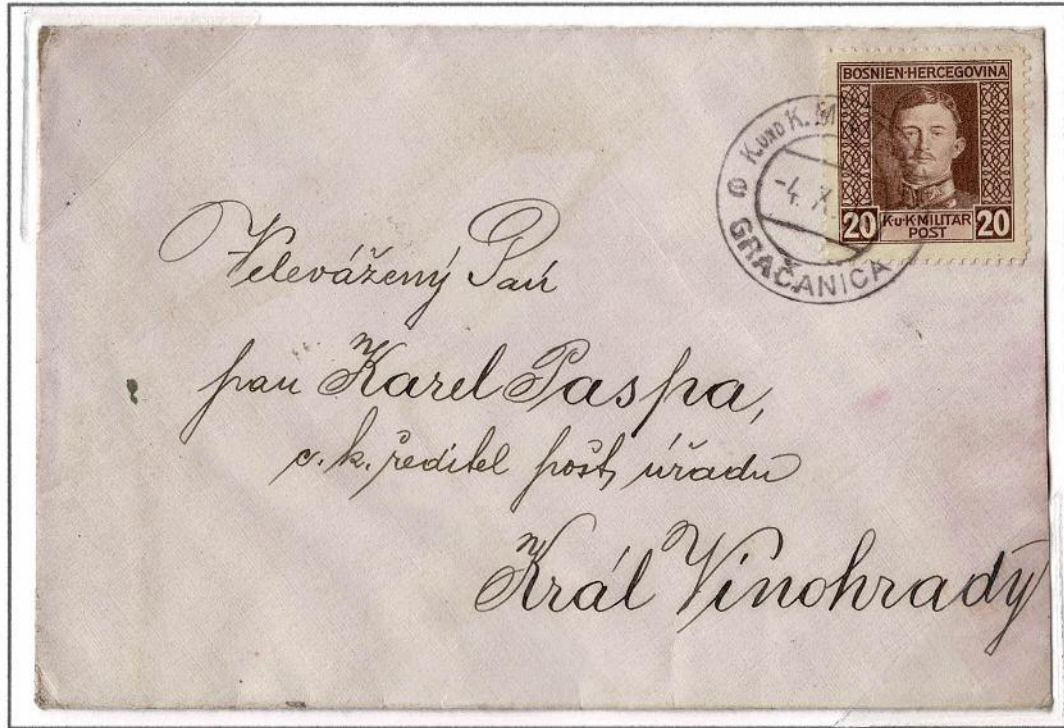 BOSNIEN-HERCEGOVINA
20 K.u.K.MILITÄR 20
POST
K. UND K. M
-4. X.
GRAČANICA
Velevážený Pan
pan Karel Paspa,
c. k. ředitel pošt, úřadu
Král Vinohrady